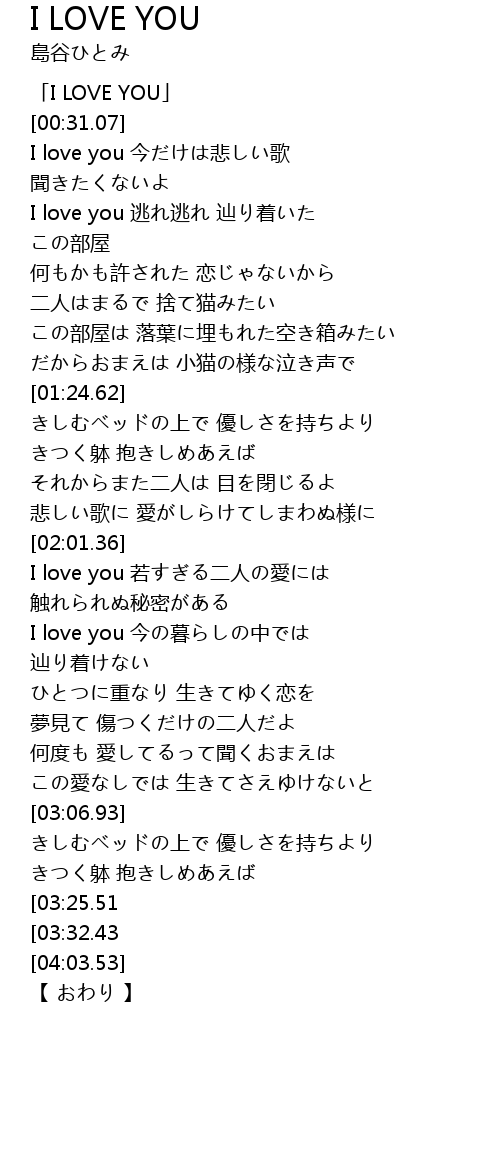 I LOVE YOU
島谷ひとみ
「I LOVE YOU」
[00:31.07]
I love you 今だけは悲しい歌
聞きたくないよ
I love you 逃れ逃れ 辿り着いた
この部屋
何もかも許された 恋じゃないから
二人はまるで 捨て猫みたい
この部屋は 落葉に埋もれた空き箱みたい
だからおまえは 小猫の様な泣き声で
[01:24.62]
きしむベッドの上で 優しさを持ちより
きつく躰 抱きしめあえば
それからまた二人は 目を閉じるよ
悲しい歌に 愛がしらけてしまわぬ様に
[02:01.36]
I love you 若すぎる二人の愛には
触れられぬ秘密がある
I love you 今の暮らしの中では
辿り着けない
ひとつに重なり 生きてゆく恋を
夢見て 傷つくだけの二人だよ
何度も 愛してるって聞くおまえは
この愛なしでは 生きてさえゆけないと
[03:06.93]
きしむベッドの上で 優しさを持ちより
きつく躰 抱きしめあえば
[03:25.51
[03:32.43
[04:03.53]
【 おわり 】